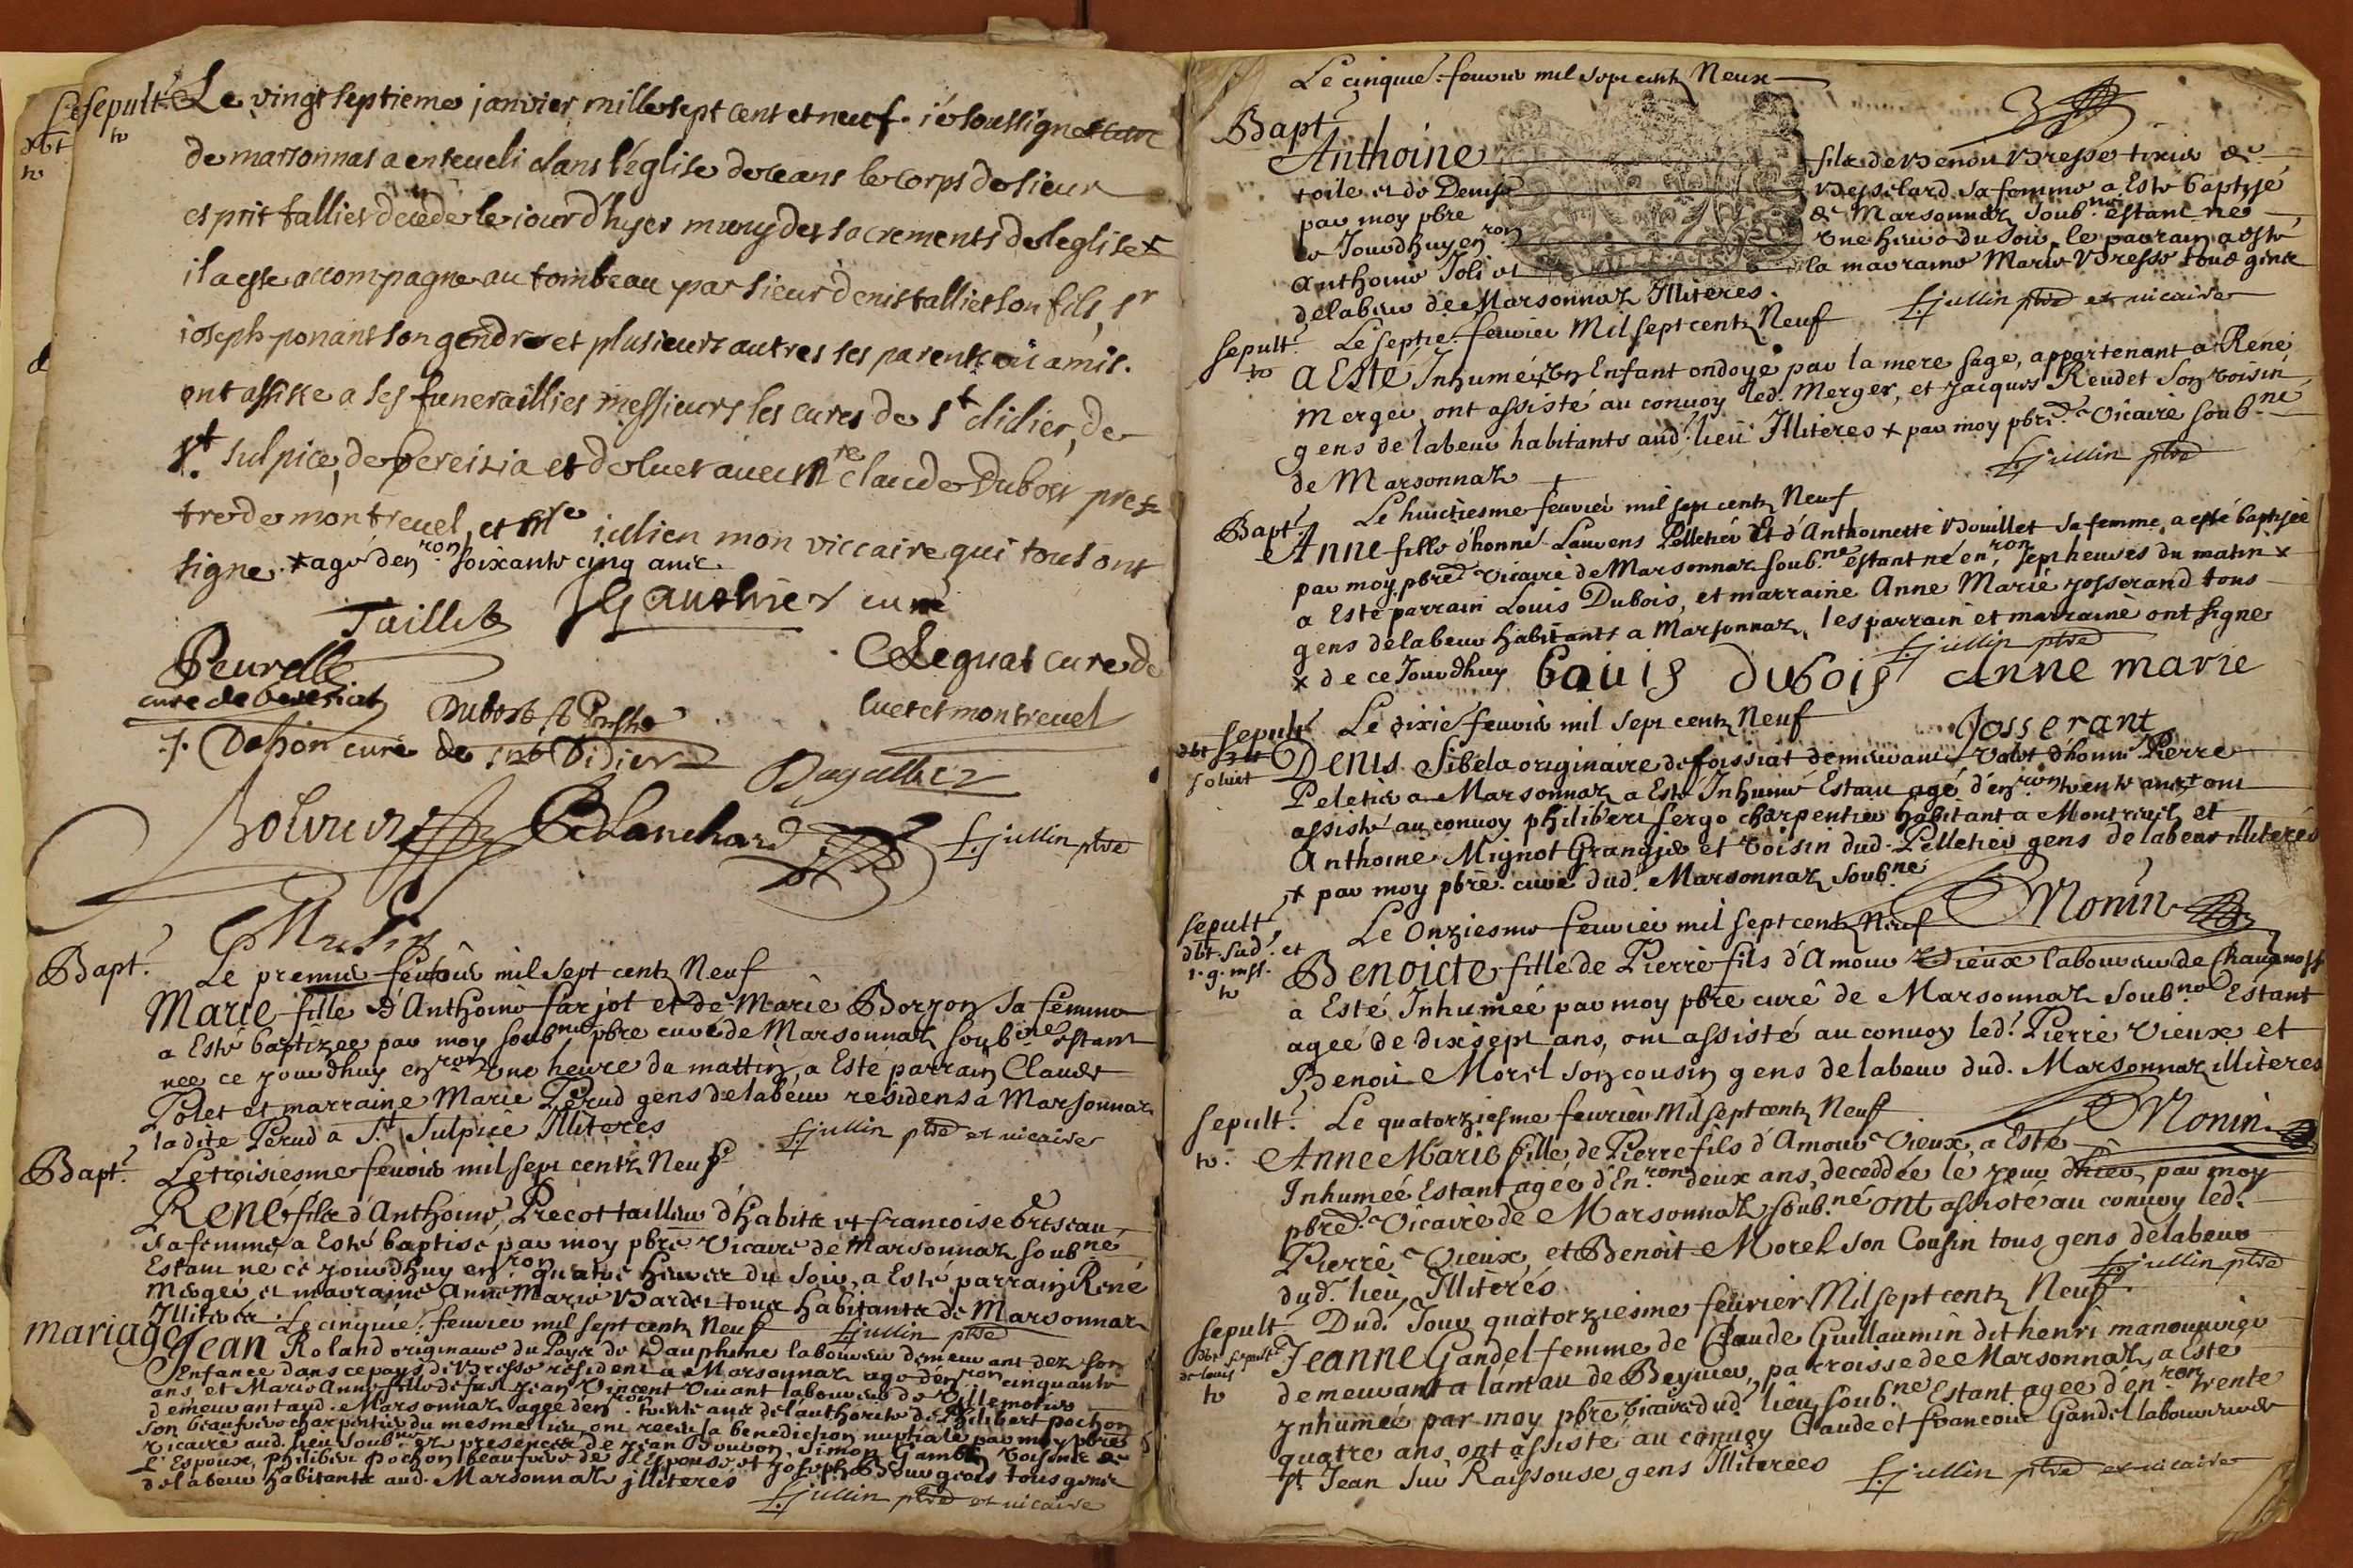 sepult. Le vingt septieme janvier mille sept cent et neuf. ie soussigne
de marsonnas a enseveli dans l'église de ceans le corps de sieur
esprit tallier decede le iour d'hyer muny des sacrements de leglise x
il a este accompagne au tombeau par sieur denis tallier son fils, sr
ioseph ponant son gendre et plusieurs autres ses parents amis.
ont assiste a ses funeraillies messieurs les cures de st didier, de
st. sulpice, de bereizia et de luet avec mre claude Dubost pres
tre de montrevel, et mre iullien mon viccaire qui tous ont
signe. x agé d'enron. soixante cinq ans
Gauthier cure
Peurelle
cure de bereziat
C Leguat cure de
Dubost
luet et montrevel
Dehon curé de Didier
Blanchard
f. jullin ptre
Bapt.
Le premier feuvrier mil sept centz Neuf
Marie fille d'Anthoine farjot et de Marie Borjon sa femme
a Esté baptizee par moy soubné pbre curé de Marsonnaz soubné estant
nee ce jourdhuy enron Une heure du mattin, a Esté parrain Claude
Polet et marraine Marie Perud gens delabeur residens a Marsonnaz
ladite Perud a St. Sulpice Illiteres
f. jullin ptre et vicaire
Bapt. Le troisiesme feuvrier mil sept centz Neuf
René fils d'Anthoine Precot tailleur d'habits et francoise
sa femme, a Esté baptisé par moy pbre Vicaire de Marsonnaz soubné
Estant né ce jourdhuy enron quatre heures du soir, a Esté parrain René
Merger et marraine Anne Marie Bardet tous habitants de Marsonnaz
Illiteres. Le cinquie. feuvrier mil sept centz Neuf f. jullin ptre
mariage Jean Roland originaire du Pays de Dauphine laboureur demeurant dez son
Enfance dans ce pays de Bresse resident a Marsonnaz agé d'enron cinquante
ans, et Marie Anne fille de feu Jean Vincent Vivant laboureur de Villemotier
demeurant aud. Marsonnaz agée d'enron. trente ans de l'authorite de Philibert pochon
son beaufrere charpentier du mesme lieu, ont receu la benediction nuptiale par moy pbre
vicaire aud. lieu soubné en presences de Jean Bouvon, Simon Gambin voisins de
l'Espoux, philibert pochon beaufrere de l'Espouse et Joseph tous gens
delabeur habitants aud. Marsonnaz illiteres
f. jullin ptre et vicaire
Le cinquie. feuvrier mil sept centz Neuf
Bapt.
Anthoine fils de Benoit Bresse tixier de
toile et de Denise Beyselard sa femme a Esté baptisé
par moy pbre de Marsonnaz soubné estant né
ce Jourdhuy enron une heure du soir, le parrain a esté
Anthoine Joli et la marraine Marie Bresse tous gens
delabeur de Marsonnaz Illiteres. f. jullin ptre et vicaire
sepult. Le septie. feuvrier Mil sept centz Neuf
A Esté Inhumé un Enfant ondoyé par la mere sage, appartenant a René
Merger, ont assisté au convoy led. Merger, et Jacques Reudet son voisin
gens de labeur habitants aud. lieu Illiteres x par moy pbre Vicaire soubné
de Marsonnaz
f. jullin ptre
Bapt. Le huictiesme feuvrier mil sept centz Neuf
Anne fille d'honné. Laurens Pelletier Et d'Anthoinette Bouillet sa femme, a esté baptisée
par moy pbre Vicaire de Marsonnaz soubné estant né enron. sept heures du matin x
a Esté parrain Louis Dubois, et marraine Anne Marie Josserand tous
gens delabeur habitants a Marsonnaz, les parrain et marraine ont signe
x de ce Jourdhuy f. jullin ptre
Louis dubois Anne marie
Josserant
sepult. Le dixie. feuvrier mil sept centz Neuf
Denis Sibela originaire de foissiat demeurant Valet d'honné. Pierre
Peletier a Marsonnaz a Esté Inhumé Estant agé d'enron trente ans x ont
assisté au convoy philibert sergo charpentier habitant a Montrevel, et
Anthoine Mignot Granger et voisin dud. Pelletier gens delabeur illiterés
x par moy pbre. curé dud. Marsonnaz soubné
Monin
sepult.
Le Onziesme feuvrier mil sept centz Neuf
Benoicte fille de Pierre fils d'Amour Vieux laboureur de
a Esté Inhumeé par moy pbre curé de Marsonnaz soubné Estant
ageé de dix sept ans, ont assisté au convoy led. Pierre Vieux et
Benoit Morel son cousin gens delabeur dud. Marsonnaz illiteres
Monin
sepult. Le quatorziesme feuvrier Mil sept centz Neuf
Anne Marie fille de Pierre fils d'Amour Vieux, a Esté
Inhumeé Estant agée d'Enron. deux ans, deceddée le jour d'hier, par moy
pbre. Vicaire de Marsonnaz soubné ont assisté au convoy led.
Pierre Vieux, et Benoit Morel son Cousin tous gens delabeur
dud. lieu Illiterés. f. jullin ptre
sepult. Dud. Jour quatorziesme feuvrier Mil sept centz Neuf
Jeanne Gandel femme de Claude Guillaumin dit henri manouvrier
demeurant a lamau de Beyviere, parroisse de Marsonnaz, a Esté
Inhumeé par moy pbre vicaire dud. lieu soubné Estant agee d'enron trente
quatre ans, ont assisté au convoy Claude et francois Gandel laboureurs de
st Jean sur Raissouse gens Illiterées f. jullin ptre et vicaire